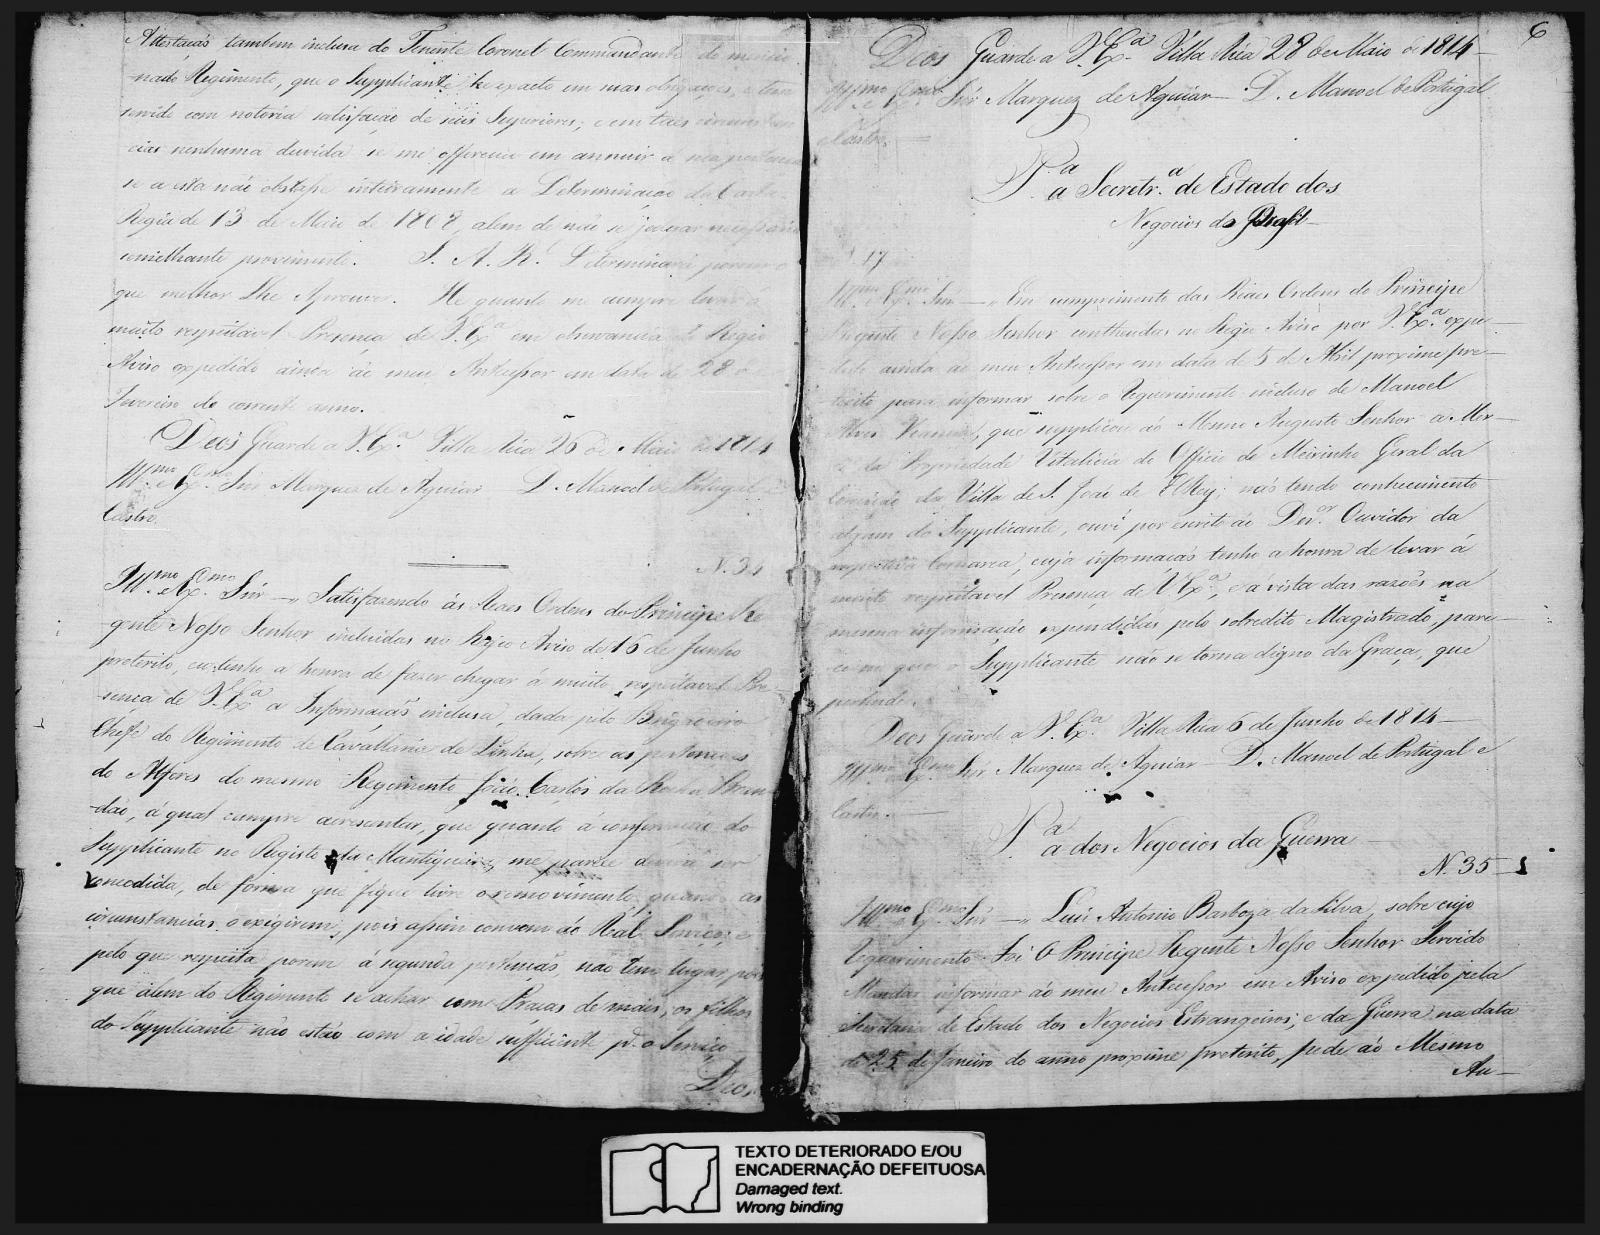 Attestaçaõ tambem inclusa do Tenente Coronel Commandante do mencio
nado Regimento, que o Supplicante he exacto em suas obrigaçoes, e tem
servido com notoria satisfaçaõ de seus Superiores; e em taes circunstan
cias nenhuma duvida se me offerecia em annuir á sua pertençaõ
se a esta naõ obstasse inteiramente a Determinaçaõ da Carta
Regia de 13 de Maio de 1808, alem de naõ se julgar necessario
semelhante provimento. S. A. R. Determinará porem o
que melhor Lhe Aprouver. He quanto me cumpre levar á
muito respeitavel Presença de V. Exª em observancia do Regio
Aviso expedido ainda ao meu Antecessor em data de 28 de
Fevereiro do corrente anno.
Deos Guarde a V. Exª Villa Rica 26 de Maio de 1814
Illmo. e Exmo. Snr Marquez de Aguiar D. Manoel de Portugal e
Castro.
N. 34
Illmo. e Exmo. Snr —„ Satisfazendo ás Reaes Ordens do Principe Re
gente Nosso Senhor incluidas no Regio Aviso de 16 de Junho
preterito, eu tenho a honra de fazer chegar á muito respeitavel Pre
sença de V. Exª a Informaçaõ inclusa, dada pelo Brigadeiro
Chefe do Regimento de Cavallaria de Linha, sobre as pertençoes
do Alferes do mesmo Regimento Joaõ Carlos da Rocha Bran
daõ, á qual cumpre acresentar, que quanto á conservaçaõ do
Supplicante no Registo da Mantiqueira, me parece deverá ser
concedida, de forma que fique livre o removimento, quando as
circunstancias o exigirem, pois assim convem ao Real Serviço; e
pelo que respeita porem á segunda pertençaõ, naõ tem lugar, por
que alem do Regimento se achar com Praças de mais, os filhos
do Supplicante naõ estaõ com a idade sufficiente pª o Serviço
Deos
6
Deos Guarde a V. Exª Villa Rica 28 de Maio de 1814—
Illmo. e Exmo. Snr Marquez de Aguiar— D. Manoel de Portugal
e Castro.—
Pª a Secretrª de Estado dos
Negocios do Brasil—
17
Illmo. e Exmo. Snr —„ Em cumprimento das Reaes Ordens do Principe
Regente Nosso Senhor contheudas no Regio Aviso por V. Exª expe—
dido ainda ao meu Antecessor em data de 5 de Abril proximo pre—
terito para informar sobre o Requerimento incluso de Manoel
Alves Vianna, que supplicou ao Mesmo Augusto Senhor a Mer—
cê da Propriedade Vitalicia do Officio de Meirinho Geral da
Comarca da Villa de S. Joaõ de ElRey; naõ tendo conhecimento
algum do Supplicante, ouvi por escrito ao Dor. Ouvidor da
respectiva Comarca, cuja informaçaõ tenho a honra de levar á
muito respeitavel Presença de V. Exª, e á vista das razoẽs na
mesma informaçaõ expendidas pelo sobredito Magistrado, pare—
ce me que o Supplicante naõ se torna digno da Graça, que
pertende.
Deos Guarde a V. Exª Villa Rica 6 de Junho de 1814—
Illmo. e Exmo. Snr Marquez de Aguiar— D. Manoel de Portugal e
Castro.—
Pª a dos Negocios da Guerra—
N. 35—
Illmo. e Exmo. Snr —„ Luis Antonio Barboza da Silva, sobre cujo
Requerimento Foi O Principe Regente Nosso Senhor Servido
Mandar informar ao meu Antecessor em Aviso expedido pela
Secretaria de Estado dos Negocios Estrangeiros, e da Guerra na data
de 25 de Janeiro do anno proximo preterito, pede ao Mesmo
Au—
TEXTO DETERIORADO E/OU
ENCADERNAÇÃO DEFEITUOSA
Damaged text.
Wrong binding